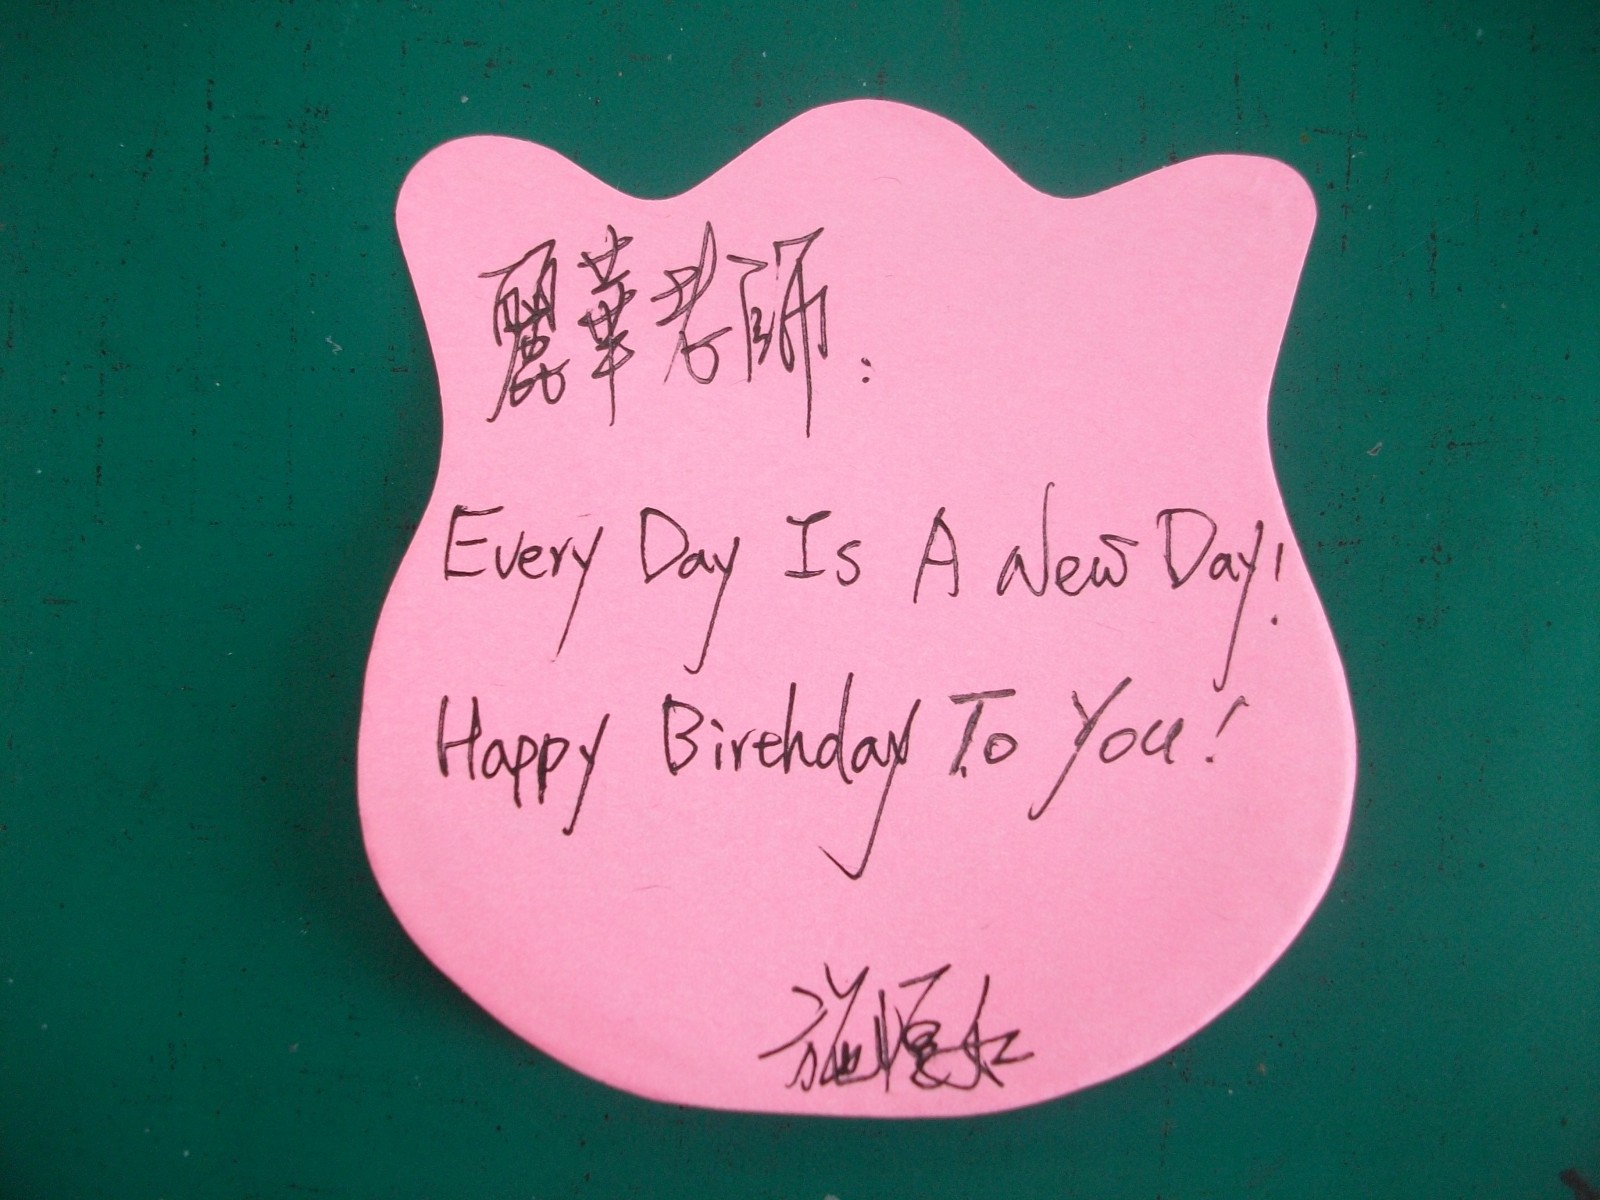 麗華老師:
Every Day Is A New Day!
Happy Birthday To You!
施